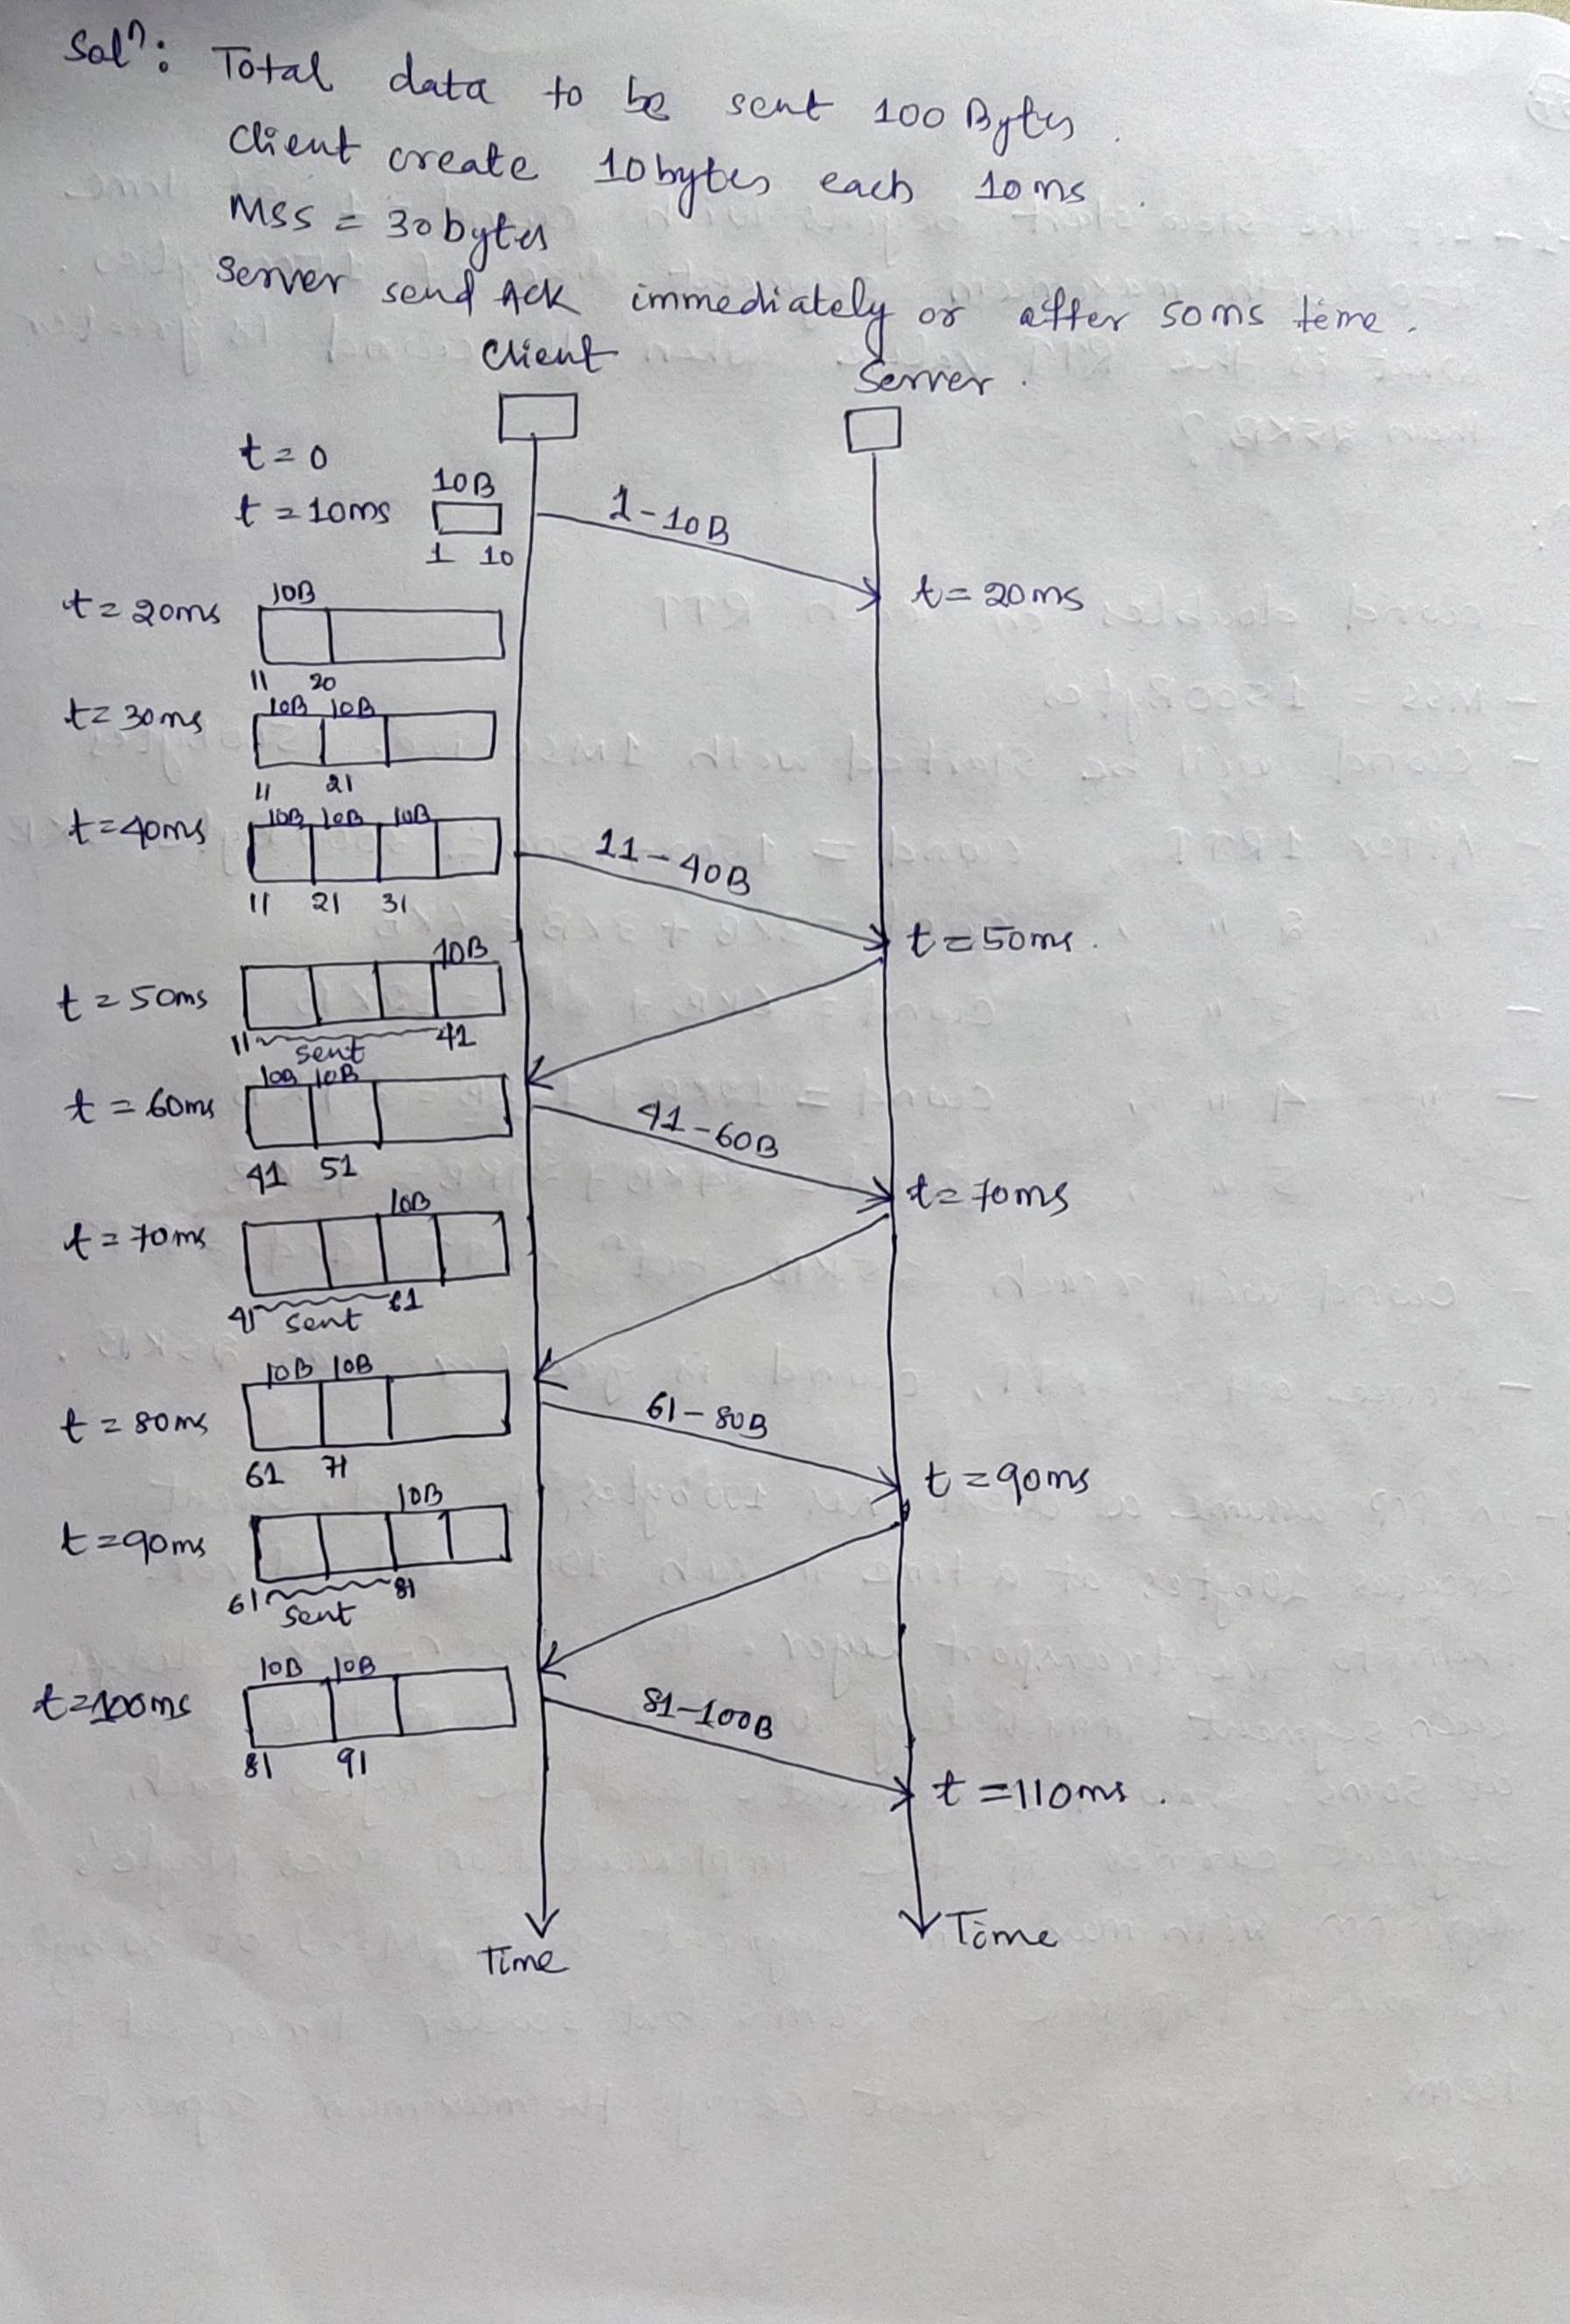 Solⁿ: Total data to be sent 100 Bytes.
Client create 10bytes each 10ms.
MSS = 30bytes
Server send Ack immediately or after 50ms time.
Client
Server.
t=0
t=10ms
10B
1 10
1-10B
t=20ms
t=20ms
10B
11 20
t=30ms
10B 10B
11 21
t=40ms
10B 10B 10B
11 21 31
11-40B
t=50ms.
t=50ms
10B
11 sent 41
t=60ms
10B 10B
41 51
41-60B
t=70ms
t=70ms
10B
41 sent 61
t=80ms
10B 10B
61 71
61-80B
t=90ms
t=90ms
10B
61 sent 81
t=100ms
10B 10B
81 91
81-100B
t=110ms.
Time
Time